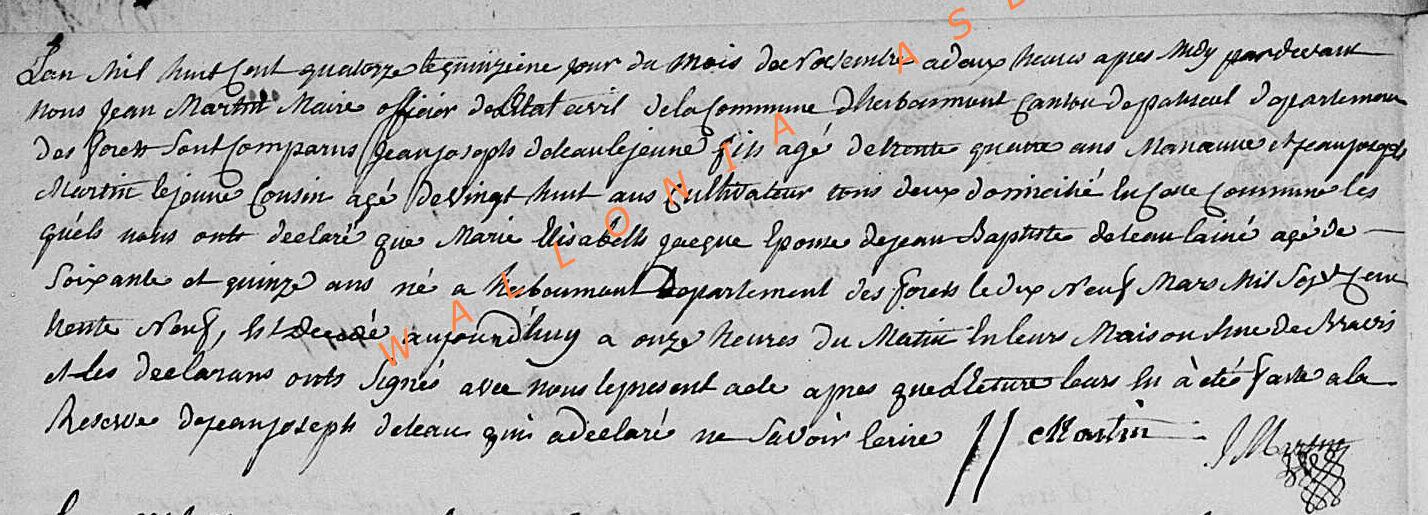 Lan Mil huit Cent quatorze le quinzieme jour du Mois de Novembre a deux heures apres Midy pardevant
nous Jean Martin Maire officier de l'Etat civil de la Commune d'herbeumont Canton de paliseul departement
des forets Sont Comparus Jean joseph deleau lejeune fils agé de trente quatre ans Manœuvre et jean joseph
Martin le jeune Cousin agé de vingt huit ans Cultivateur tous deux domicilié en Cette Commune les
quels nous onts declaré que Marie Elisabeth jacque Epouse de jean Baptiste deleau lainé agé de
Soixante et quinze ans né a herbeumont Departement des forets le dix Neuf Mars Mil Sept Cent
trente Neuf, Est decedé aujourd'huy a onze heures du Matin En leurs Maison
et les declarans onts Signés avec nous le present acte apres que lecture leurs En à eté faite a la
Reserve de jean joseph deleau qui a declaré ne Savoir Ecrire // Martin J Martin
WALLONIA ASB